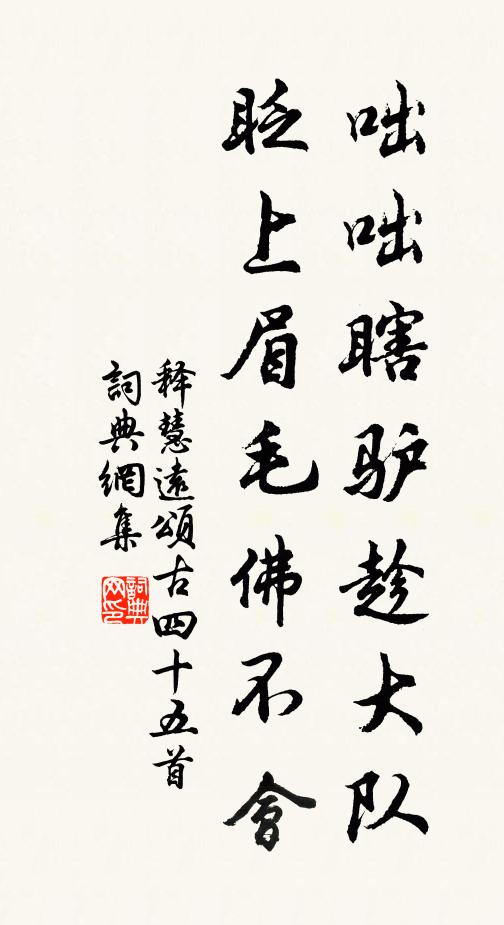 咄咄瞎驴趁大队
眨上眉毛佛不會
释慧遠頌古四十五首
詞典網集
詞典
网印